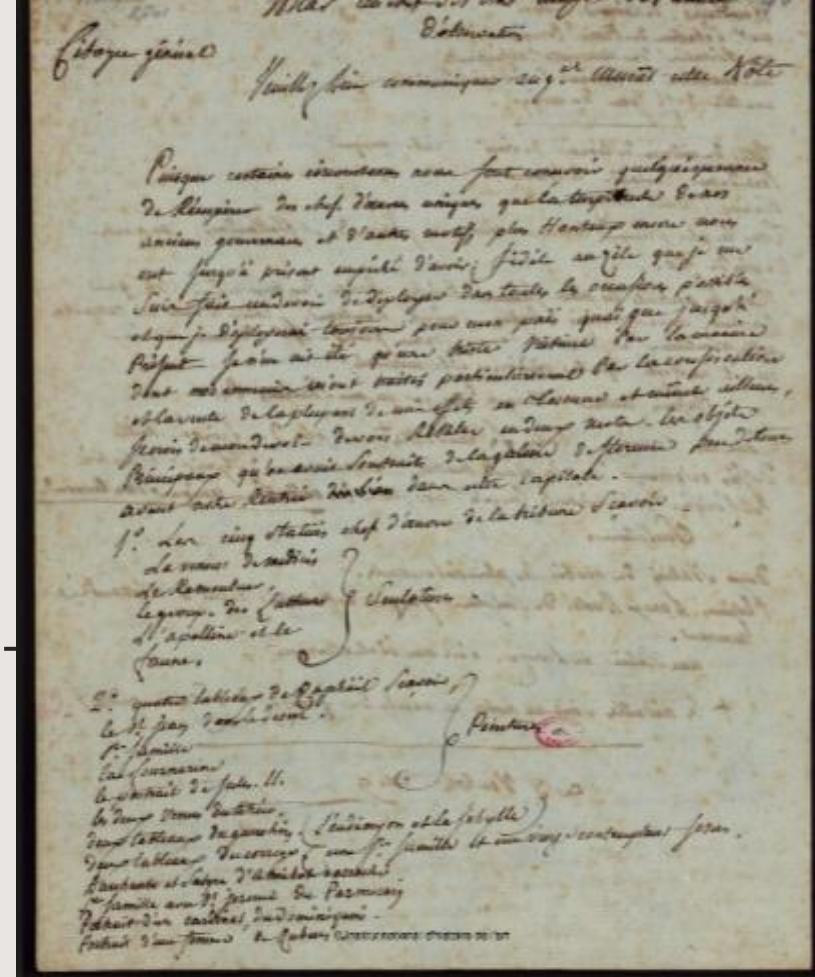 d'observation
Citoyen général
Veuillez bien communiquer au g.al cette Note
Puisque certaines circonstances nous font concevoir quelqu'espérance
de Récupérer des chef d'œuvres uniques que la turpitude de nos
anciens gouvernans et d'autres motifs plus Honteux encore nous
ont jusqu'à présent empêché d'avoir; fidèle au zèle que je me
suis fait un devoir de déployer dans toutes les occasions possible
et que je déployerai toujours pour mon païs quoi que jusqu'à
Présent Je n'en ai été qu'une triste Victime Par la manière
dont mes ennemis m'ont traités particulièrement Par la confiscation
et la vente de la pluspart de mes effets en et même ailleurs,
je crois de mon devoir de vous Rappeler en deux mots les objets
Principaux qu'on avait soustraits de la galerie de florence peu de tems
avant notre Rentrée dans cette Capitale.
1.° Les cinq statues chef d'œuvre de la tribune Scavoir
La venus de medicis
Le Remouleur,
le groupe des Lutteurs
L'apolline et le
faune.
Sculpture
2.° quatre tableaux de Raphaël Scavoir
le S.t jean dans le desert.
S.te famille
La fournarine
le portrait de Jules II.
Peinture
les deux venus du titien
deux tableaux du guerchin, l'endimyon et la sybille
deux tableaux du correge une S.te famille et une vierge contemplant Jesus.
S.te famille avec S.t jerome du Parmesan
Portrait d'un cardinal, du dominiquin.
Portrait d'une femme de Rubens